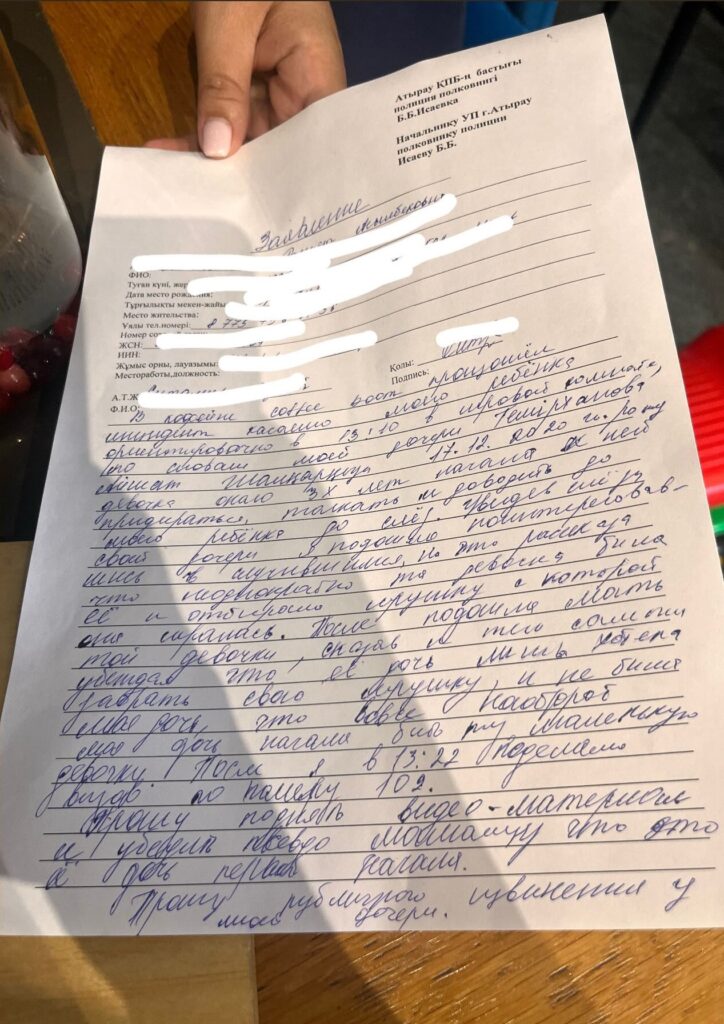 Атырау ҚПБ-ң бастығы
полиция полковнигі
Б.Б.Исаевқа
Начальнику УП г.Атырау
полковнику полиции
Исаеву Б.Б.
Заявление
ФИО:
Туған күні, жер
Дата место рождения:
Тұрғылықты мекен-жайы
Место жительства:
Ұялы тел.номері: 8 775
Номер со
ЖСН:
ИИН:
Жұмыс орны, лауазымы:
Местоработы,должность:
Қолы:
Подпись:
А.Т.Ж
Ф.И.О:
В кофейне coffee boom произошёл
инцидент касаемо моего ребёнка
ориентировочно в 13:10 в игровой комнате,
моей дочери Темірханова
17.12.2020 г. рожд
девочка около 3х лет начала к ней
придираться, толкать и доводить до
моего ребёнка до слёз. Увидев слёзы
своей дочери я подошла поинтересовав-
шись о случившимся, на что рассказа
что неоднократно та девочка била
её и отбирала игрушку с которой
она игралась. После подошла мать
той девочки, сказав и тем самым
убеждая что её дочь лишь хотела
забрать свою игрушку, и не била
мая дочь, что вовсе наоборот
моя дочь начала бить ту маленькую
девочку. После я в 13:22 поделала
вызов по номеру 102.
Прошу поднять видео-материал
и убедить псевдо мамашу что это
её дочь первая начала.
Прошу публичного извинения у
моей дочери.